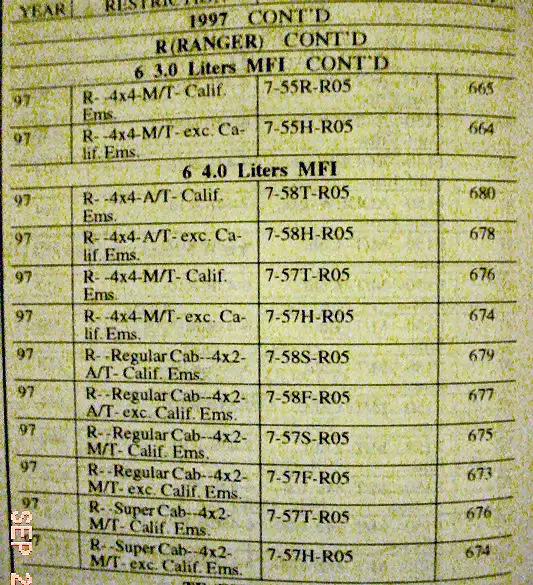 YEAR RESTRICTION
1997 CONT'D
R(RANGER) CONT'D
6 3.0 Liters MFI CONT'D
97 R- -4x4-M/T- Calif. 7-55R-R05 665
Ems.
97 R- -4x4-M/T- exc. Ca- 7-55H-R05 664
lif. Ems.
6 4.0 Liters MFI
97 R- -4x4-A/T- Calif. 7-58T-R05 680
Ems.
97 R- -4x4-A/T- exc. Ca- 7-58H-R05 678
lif. Ems.
97 R- -4x4-M/T- Calif. 7-57T-R05 676
Ems.
97 R- -4x4-M/T- exc. Ca- 7-57H-R05 674
lif. Ems.
97 R- -Regular Cab--4x2- 7-58S-R05 679
A/T- Calif. Ems.
97 R- -Regular Cab--4x2- 7-58F-R05 677
A/T- exc. Calif. Ems.
97 R- -Regular Cab--4x2- 7-57S-R05 675
M/T- Calif. Ems.
97 R- -Regular Cab--4x2- 7-57F-R05 673
M/T- exc. Calif. Ems.
97 R- -Super Cab--4x2- 7-57T-R05 676
M/T- Calif. Ems.
97 R- -Super Cab--4x2- 7-57H-R05 674
M/T- exc. Calif. Ems.
SEP 2